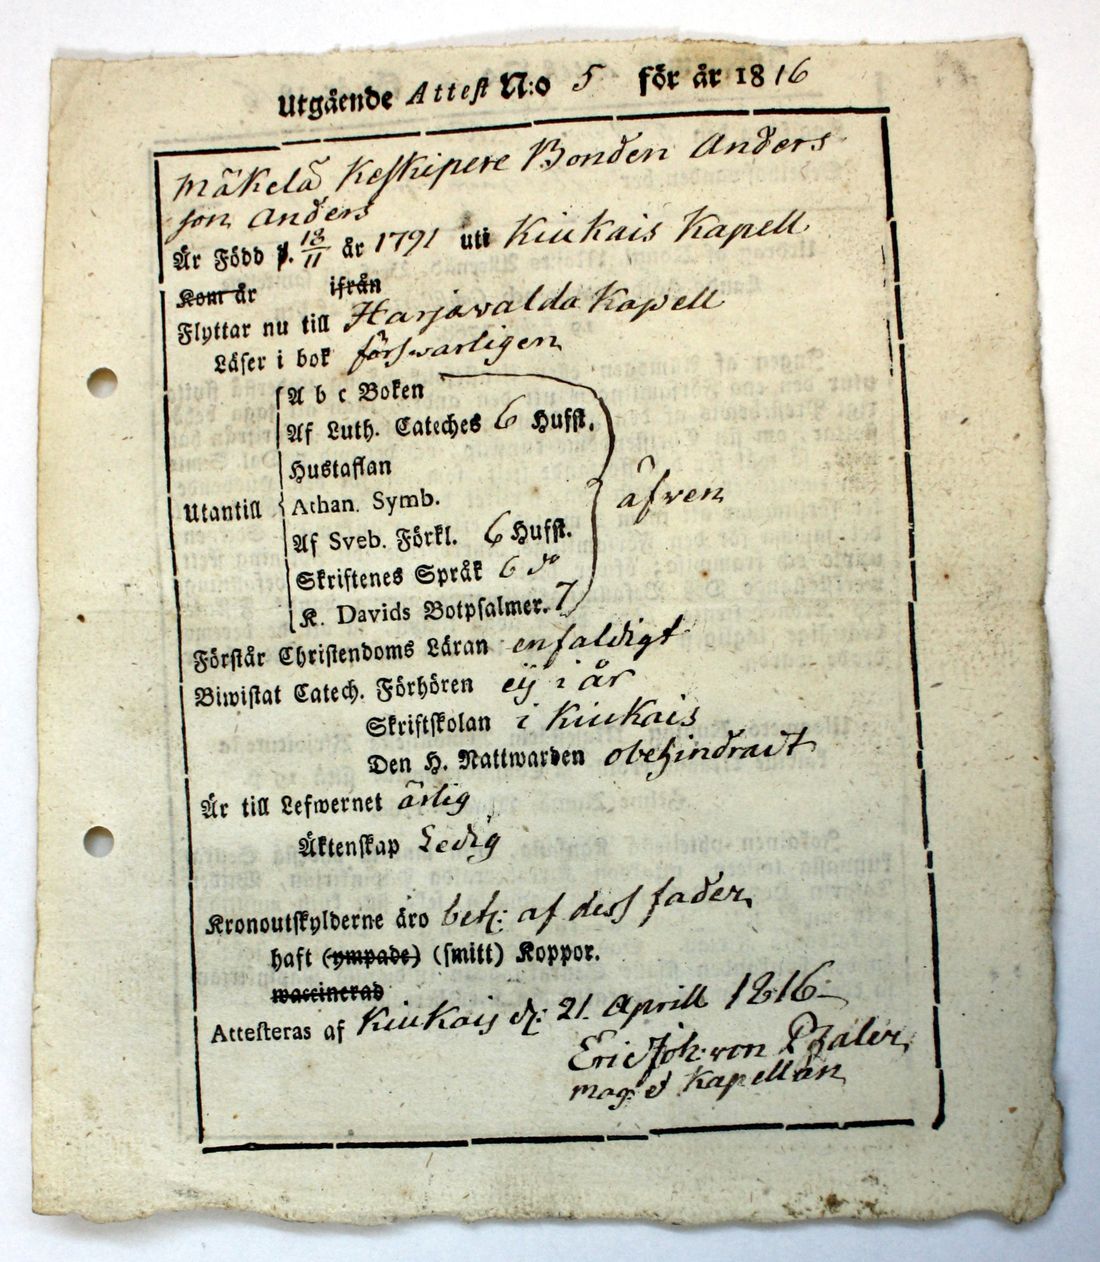 Utgående Attest N:o 5 för år 1816
Mäkelä Keskipere Bonden Anders
son Anders
Är Född d. 13/11 år 1791 uti Kiukais Kapell
Kom år ifrån
Flyttar nu till Harjavalda Kapell
Läser i bok försvarligen
A b c Boken
Af Luth. Cateches 6 Hufst.
Hustaflan
Utantill Athan. Symb. äfwen
Af Sveb. Förkl. 6 Hufst.
Skriftenes Språk 6 do
K. Davids Botpsalmer. 7
Förstår Christendoms Läran enfaldigt
Biwistat Catech. Förhören eij i år
Skriftskolan i Kiukais
Den H. Nattwarden obehindradt
Är till Lefwernet ärlig
Äktenskap Ledig
Kronoutskylderne äro bet: af dess fader
haft (ympade) (smitt) Koppor.
waccinerad
Attesteras af Kiukais d: 21 Aprill 1816
Eric Joh: von Pfaler
mag: et Kapellan